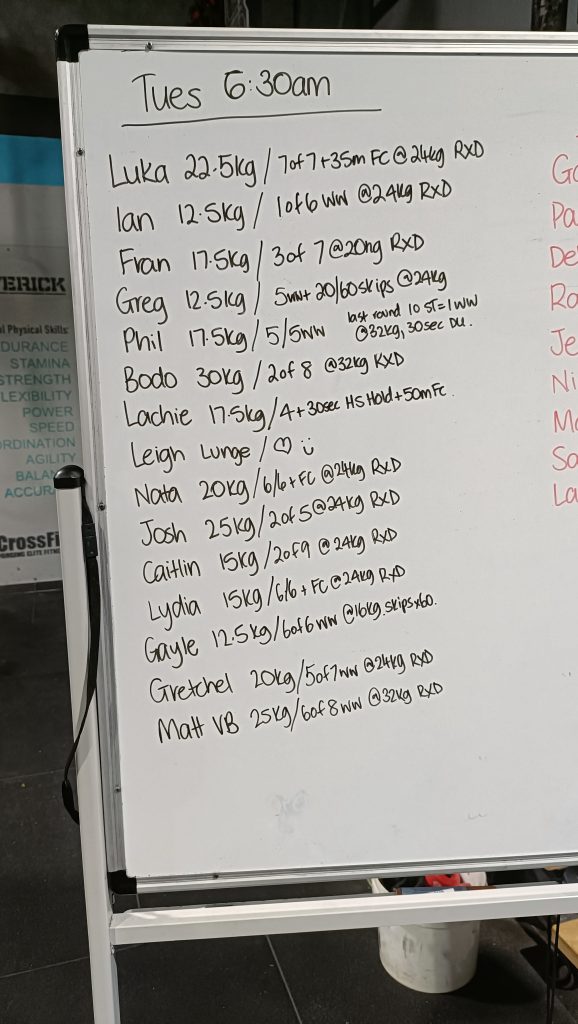 Tues 6:30am
Luka 22.5kg / 7of7+35m FC @ 24kg RXD
Ian 12.5kg / 1of6 WW @24kg RXD
Fran 17.5kg / 3 of 7 @20kg RXD
Greg 12.5kg / 5ww+ 20/60skips @24kg
Phil 17.5kg / 5/5WW last round 10 ST=1WW
@32kg, 30sec DU.
Bodo 30kg / 2of 8 @32kg RXD
Lachie 17.5kg/4+30sec HS Hold+50m FC.
Leigh Lunge / ♡ :)
Nata 20kg/6/6+FC @24kg RXD
Josh 25kg/2of5@24kg RXD
Caitlin 15kg/2of9 @24kg RXD
Lydia 15kg/6/6+FC@24kg RXD
Gayle 12.5kg/6of6WW @16kg.skipsx60.
Gretchel 20kg/5of7WW @24kg RXD
Matt VB 25kg/6of8WW @32kg RXD
Pa
De
Ro
Je
Ni
Sa
La
ERICK
al Physical Skills:
DURANCE
STAMINA
STRENGTH
LEXIBILITY
POWER
SPEED
ORDINATION
AGILITY
BALAN
ACCURA
CrossFi
ORGING ELITE FITN